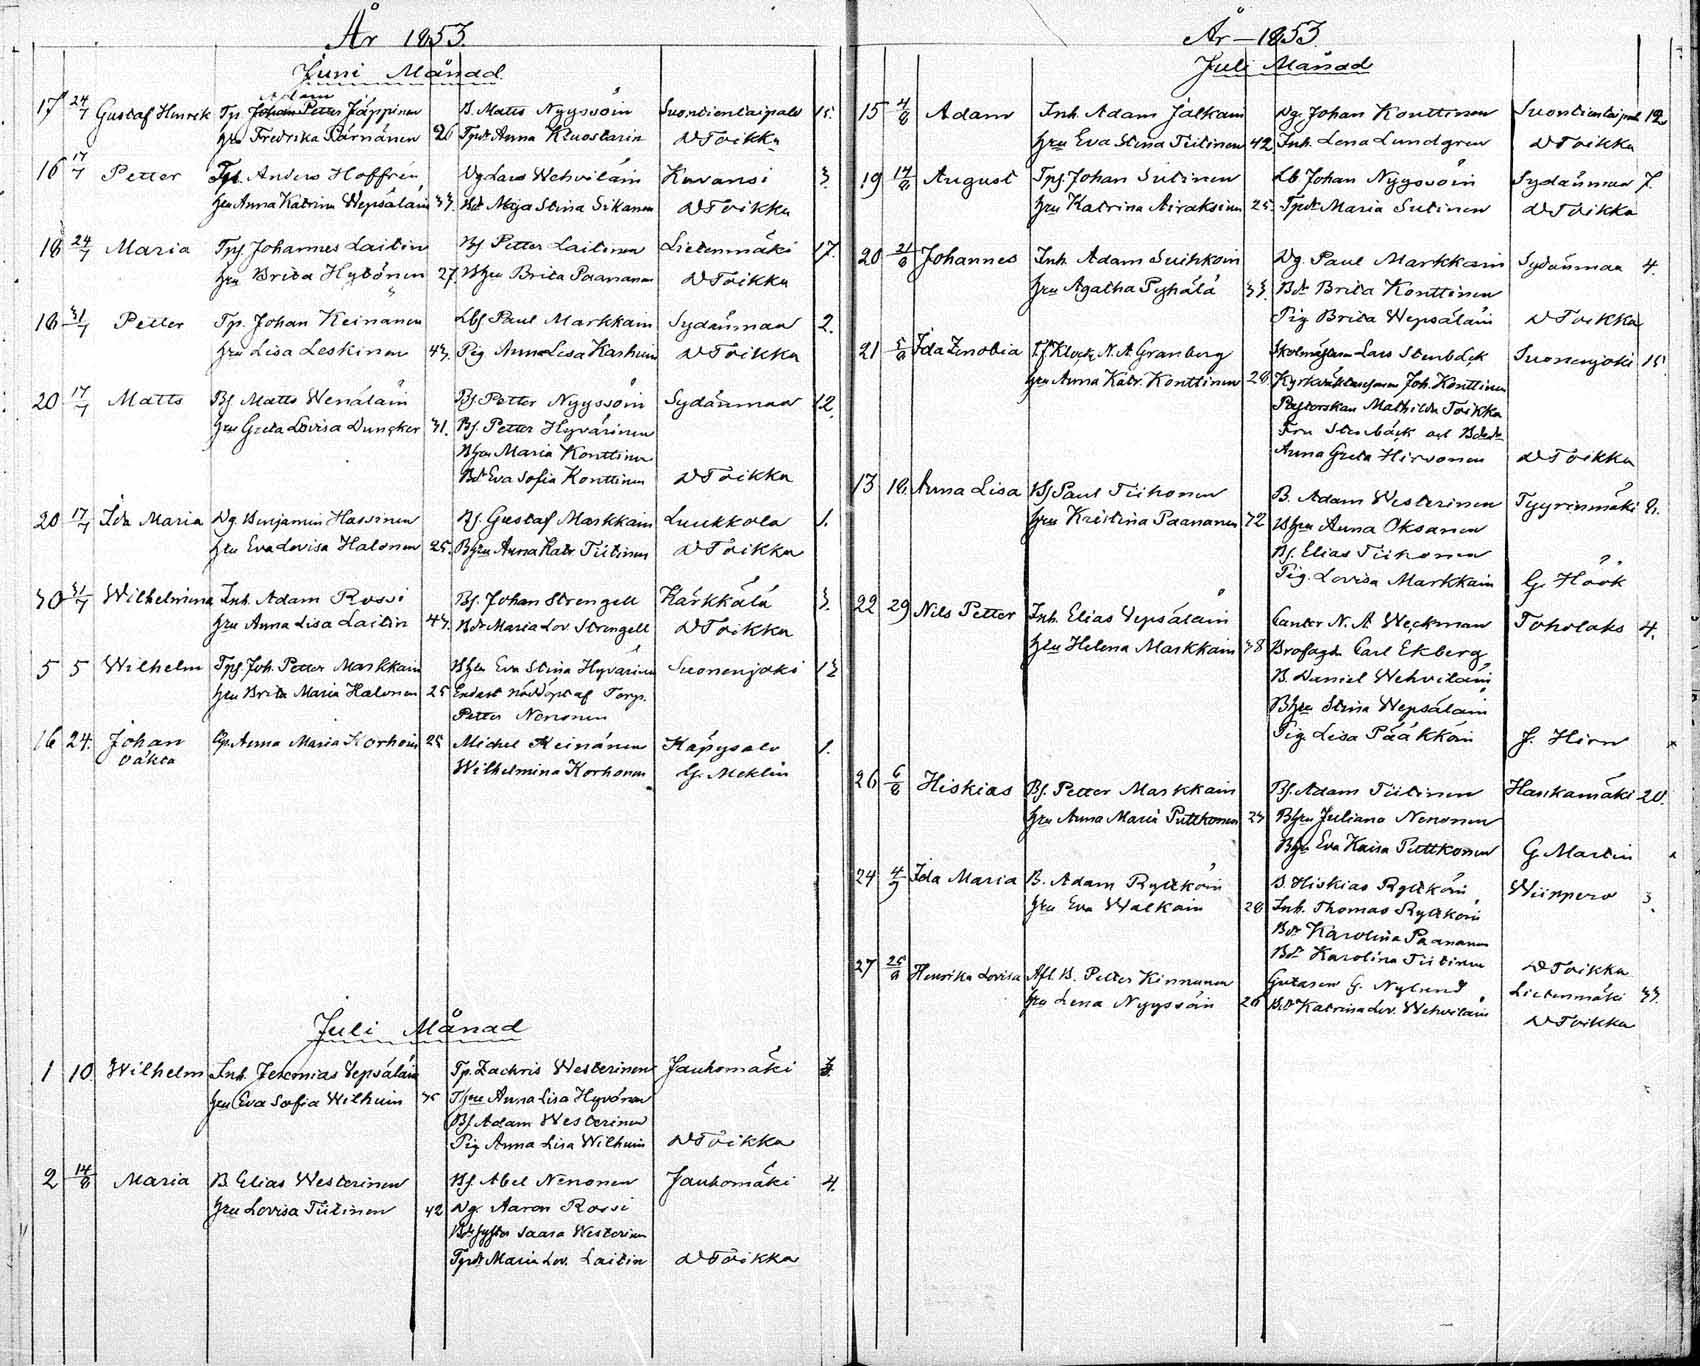 År 1853.
Juni Månad
17 24/7 Gustaf Henrik Tp. Johan Petter Jäppinen B. Matts Nyyssöin Suontientaipale 15.
Adam
hu Fredrika Kärnänen 26 Tpdr Anna Kluostarin D Toikka
16 17/7 Petter Tpf. Anders Hoffrén Dg Lars Wehviläin Kuvansi 3.
hu Anna Katrina Wepsäläin 33. Bdr Maja Stina Sikanen D Toikka
18 24/7 Maria Tpf Johannes Laitin Bf Petter Laitinen Lietenmäki 17.
hu Brita Hytönen 27. Bhu Brita Paananen D Toikka
18 31/7 Petter Tp. Johan Keinänen Lbf Paul Markkain Sydänmaa 2.
hu Lisa Leskinen 43. Pig Anna Lisa Karhuin D Toikka
20 17/7 Matts Bf Matts Wenäläin Bf Petter Nyyssöin Sydänmaa 12.
hu Greta LovisaDuncker 31. Bf. Petter Hyvärinen
Bhu Maria Konttinen
Bdr Eva Sofia Konttinen D Toikka
20 17/7 Ida Maria Dg Benjamin Hassinen Bf. Gustaf Markkain Luukkola 1.
hu Eva Lovisa Halonen 25. Bhu Anna Katr Tiitinen D Toikka
30 31/7 Wilhelmina Inh. Adam Rossi Bf. Johan Strengell Kärkkälä 3.
hu Anna Lisa Laitin 43. Bdr Maria Lov. Strengell D Toikka
5 5 Wilhelm Tpf Joh. Petter Markkain Bhu Eva Stina Hyvärinen Suonenjoki 13
hu Brita Maria Halonen 25 Endast nöddöpt af Torp.
Petter Nenonen
16 24. Johan Qp. Anna Maria Korhoin 25 Michel Keinänen Käpysalo 1.
oäkta Wilhelmina Korhonen G. Meklin
Juli Månad
1 10 Wilhelm Inh. Jeremias Vepsäläin Tp. Zachris Westerinen Jauhomäki 3.
hu Eva Sofia Wilhuin 35 Thu Anna Lisa Hyvönen
Bf Adam Westerinen
Pig Anna Lisa Wilhuin D Toikka
2 14/8 Maria B Elias Westerinen Bf. Abel Nenonen Jauhomäki 4.
hu Lovisa Tiitinen 42 Dg. Aaron Rossi
Saara Westerinen
Tpdr Maria Lov. Laitin D Toikka
År 1853
Juli Månad
15 4/8 Adam Inh Adam Jalkain Dg. Johan Konttinen Suontientaipal 12
hu Eva Stina Tiitinen 42 Inh. Lena Lundgren D Toikka
19 14/8 August Tpf Johan Sutinen Lb Johan Nyyssöin Sydänmaa 7.
hu Katrina Airaksinen 25. Tpdr Maria Sutinen D Toikka
20 21/8 Johannes Inh. Adam Suihkoin Dg. Paul Markkain Sydänmaa 4.
hu Agatha Pyhälä 33. Bdr Brita Konttinen
Pig Brita Wepsäläin D Toikka
21 5/8 Ida Zenobia Klock. N. A. Granberg Skolmästaren Lars Stenbäck Suonenjoki 15.
hu Anna Katr. Konttinen 28 Joh. Konttinen
Pastorskan Mathilda Toikka
Fru Stenbäck och Bdr
Anna Greta Hirvonen D Toikka
13 18. Anna Lisa Bf Paul Tiihonen B. Adam Westerinen Tyyrinmäki 8.
hu Kristina Paananen 32 Bhu Anna Oksanen
Bf. Elias Tiihonen
Pig. Lovisa Markkain G. Höök
22 29 Nils Petter Inh. Elias Vepsäläin Cantor N. A. Weckman Toholaks 4.
hu Helena Markkain 38 Carl Ekberg
B. Daniel Wehviläin
Bhu Stina Wepsäläin
Pig. Lisa Pääkköin J. Hirn
26 6/8 Hiskias Bf. Petter Markkain Bf. Adam Tiitinen Haukamäki 20.
hu Anna Maria Puttkonen 23 Bhu Juliana Nenonen
Bhu Eva Kaisa Puttkonen G Martin
24 4/9 Ida Maria B. Adam Rytköin B. Hiskias Rytköin Wiippero 3.
hu Eva Walkain 28 Inh. Thomas Rytköin
Bdr Karolina Paananen
Bdr Karolina Tiitinen D Toikka
27 25/8 Henrika Lovisa Afl. B. Petter Kinnunen G. Nylund Lietenmäki 33.
hu Lena Nyyssöin 26 Bdr Katrina Lov. Wehviläin
D Toikka